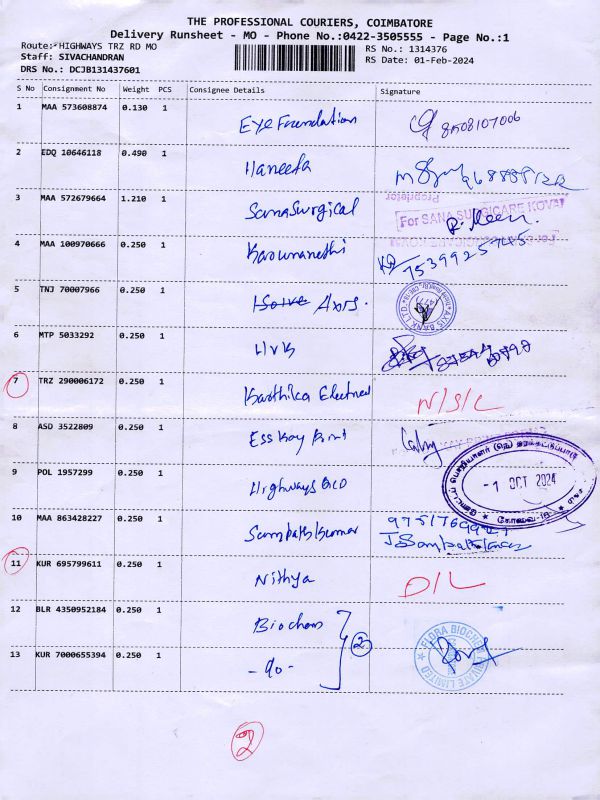 THE PROFESSIONAL COURIERS, COIMBATORE
Delivery Runsheet - MO - Phone No.:0422-3505555 - Page No.:1
Route: HIGHWAYS TRZ RD MO
RS No.: 1314376
Staff: SIVACHANDRAN
RS Date: 01-Feb-2024
DRS No.: DCJB131437601
S No Consignment No Weight PCS Consignee Details Signature
1 MAA 573608874 0.130 1 Eye Foundation
2 EDQ 10646118 0.490 1 Haneefa
3 MAA 572679664 1.210 1 Sana Surgical
Proprietor
For SANA SURGICARE KOVAI
4 MAA 100970666 0.250 1 Karounanethi 7539925745
5 TNJ 70007966 0.250 1 Axis.
AXIS BANK LTD.
6 MTP 5033292 0.250 1 HVK
7 TRZ 290006172 0.250 1 Karthika Electricel N/S/L
8 ASD 3522809 0.250 1 Esskay Print
9 POL 1957299 0.250 1 Highways QCD
-1 OCT 2024
10 MAA 863428227 0.250 1 Sampath Kumar
11 KUR 695799611 0.250 1 Nithya D/L
12 BLR 4350952184 0.250 1 Biochem
2
FLORA BIOCHEM PRIVATE LIMITED
13 KUR 7000655394 0.250 1 -do-
2